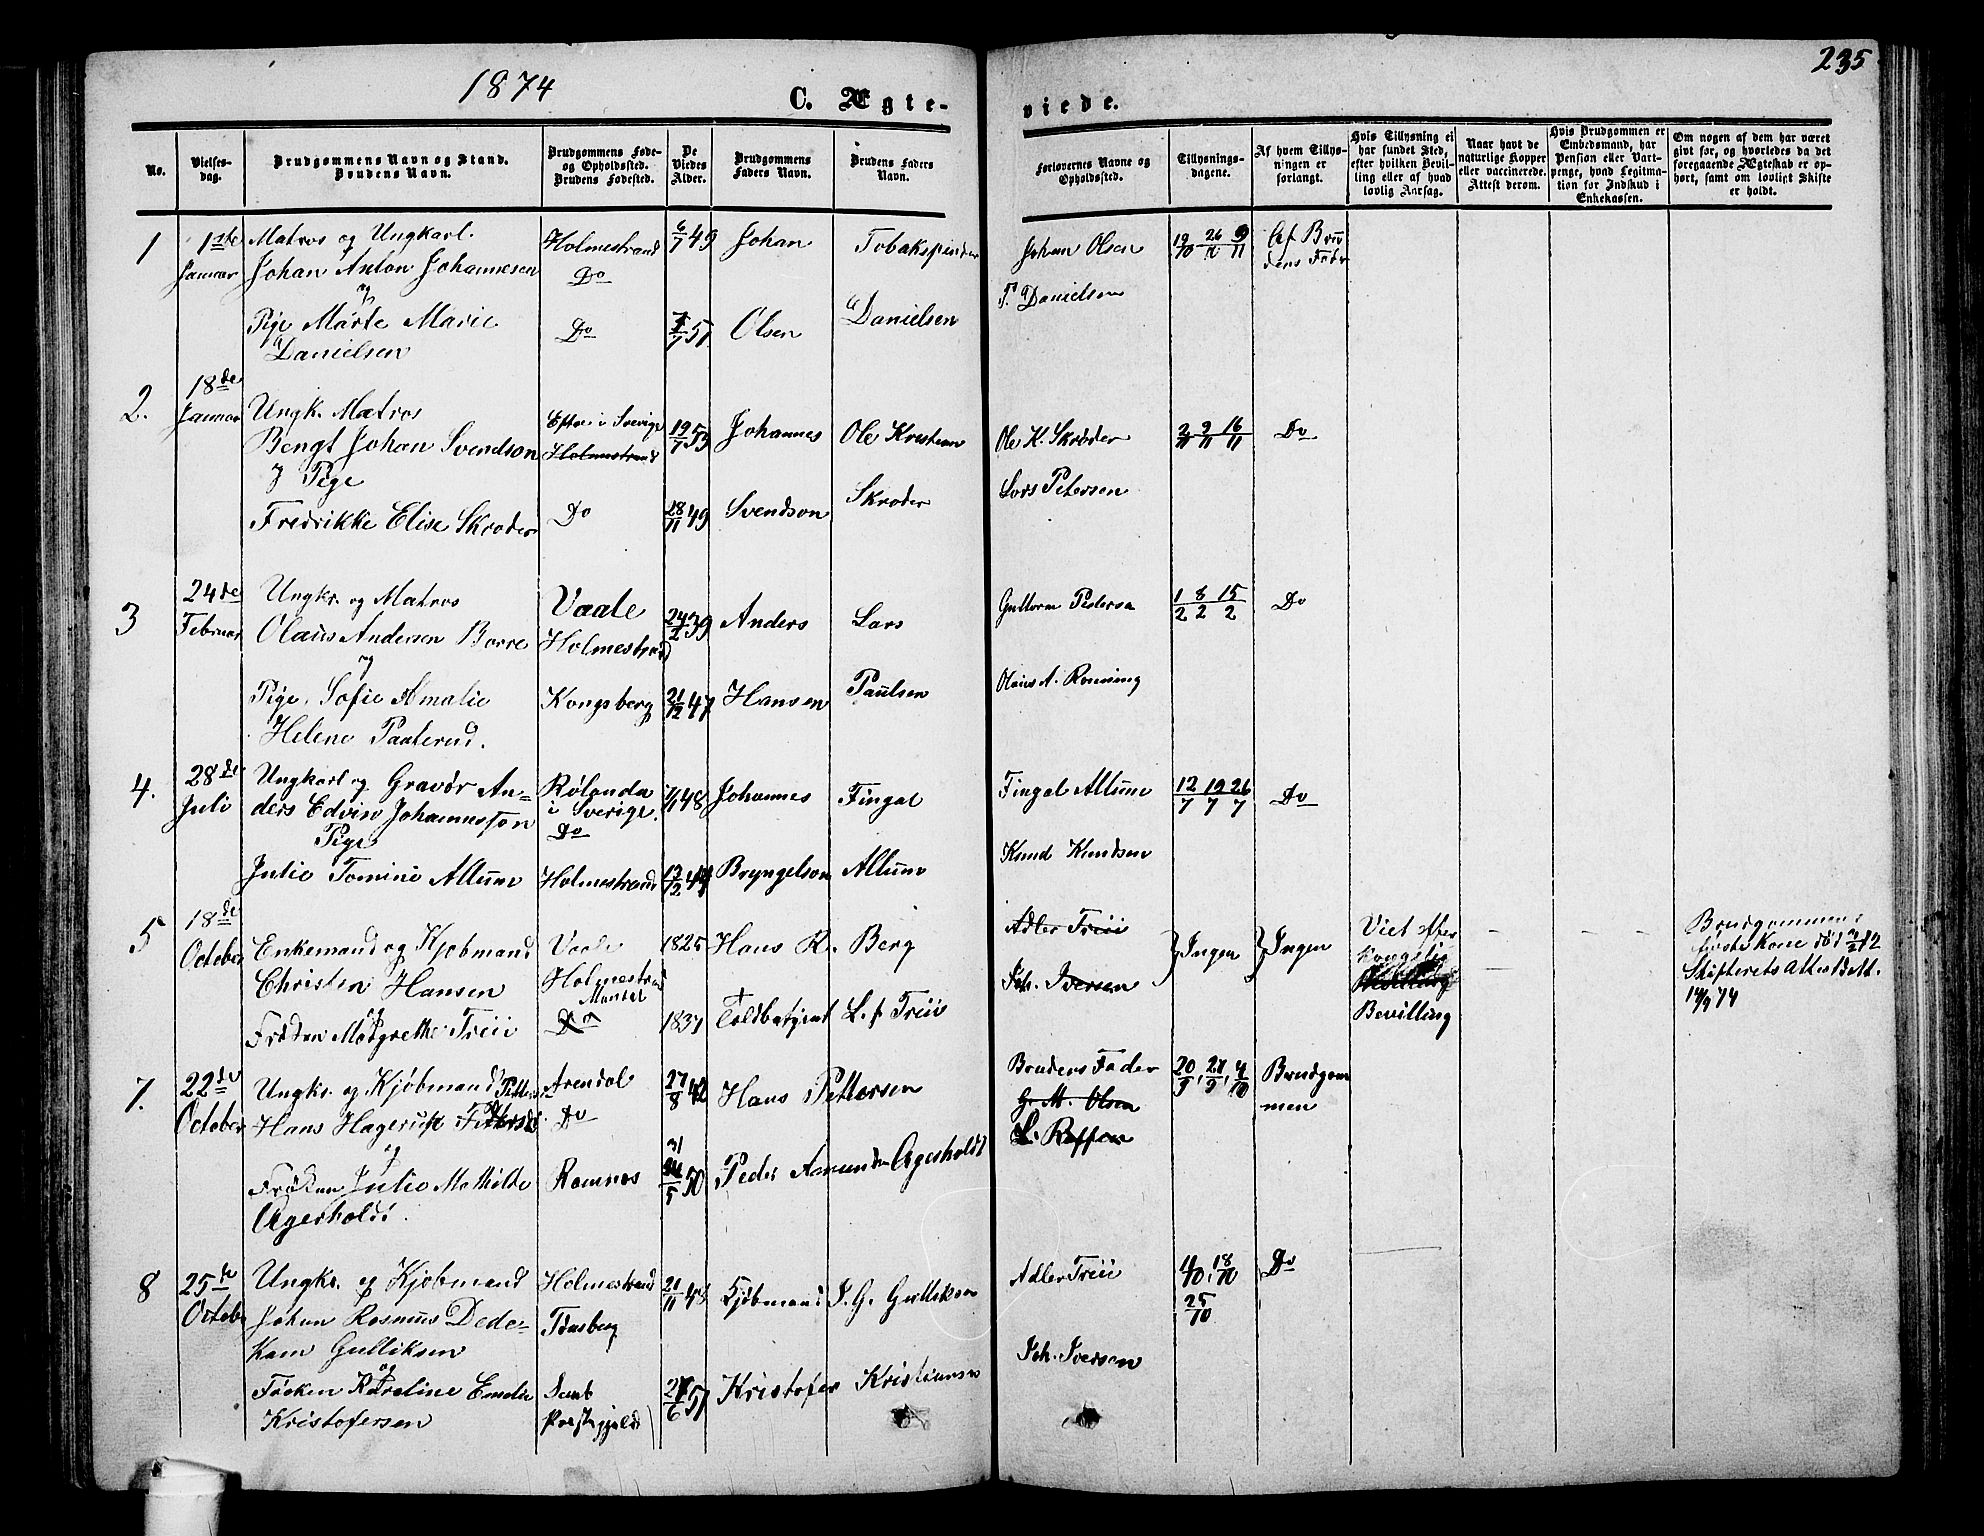 1874
C. Ægte-
viede.
235
No.
Vielses-
dag.
Brudgommens Navn og Stand.
Brudens Navn.
Brudgommens Føde-
og Opholdssted.
Brudens Fødested.
De
Viedes
Alder.
Brudgommens
Faders Navn.
Brudens Faders
Navn.
Forlovernes Navne og
Opholdssted.
Tillysnings-
dagene.
Af hvem Tillys-
ningen er
forlangt.
Hvis Tillysning ei
har fundet Sted,
efter hvilken Bevil-
ling eller af hvad
lovlig Aarsag.
Naar havt de
naturlige Kopper
eller vaccinerede.
Attest derom.
Hvis Brudgommen er
Embedsmand, har
Pension eller Vart-
penge, hvad Legitima-
tion for Indskud i
Enkekassen.
Om nogen af dem har været
givt for, og hvorledes da det
foregaaende Ægteskab er op-
hørt, samt om lovligt Skifte
er holdt.
1
1ste
Januar
Matros og Ungkarl.
Johan Anton Johannesen
og
Pige Marte Marie
Danielsen
Holmestrand
Do
Do
6/7 49
7/7 51
Johan
Olsen
Tobakspinder
Danielsen
Johan Olsen
Danielsen
19/10 26/10 9/11
Af Bru
dens Fader
2.
18de
Januar
Ungk. Matros
Bengt Johan Svendson
og Pige
Fredrikke Elise Skroder
i Sverige
Holmestrand
Do
19/7 53
28/11 49
Johannes
Svendson
Ole Kristian
Skroder
Ole K. Skrøder
Lars Petersen
2/11 9/11 16/11
Do
3
24de
Februar
Ungkr. og Matros
Olaus Andersen Borre
og
Pige. Sofie Amalie
Helene Paaterud.
Vaale
Holmestrand
Kongsberg
24/2 39
21/12 47
Anders
Hansen
Lars
Paulsen
Guttorm Pedersen
Olaus A. Ronning
1/2 8/2 15/2
Do
4.
28de
Juli
Ungkarl og Gravør An-
ders Edvin Johannesson
Pige
Julie Tomine Allum
Rølanda
i Sverige.
Do
Holmestrand
1/1 48
Johannes
Bryngelson
Fingal
Allum
Fingal Allum
Knud Knudsen
12/7 19/7 26/7
Do
5
18de
October
Enkemand og Kjøbmand
Christen Hansen
og
Frøken Margrethe Treii
Vaale
Holmestrand
Mandal
Do
1825
1837
Hans R. Berg
Toldbetjent L. f Treii
Adler Treii
Joh. Iversen
Ingen
Ingen
Viet efter
kongelig
Bevilling
Brudgommens
første Kone død
Skifterets Attest
14/9 74
7.
22de
October
Ungkr. og Kjøbmand
Hans Hagerup Pettersen
og
Frøken Julie Mathilde
Agerholdt.
Arendal
Do
Ramnes
27/8 42
31
/5 50
Hans Pettersen
Peder Amundsen Agerholdt
Brudens Fader
G. M. Olsen
20/9, 27/9, 4/10
Brudgom
men
8
25de
October
Ungkr. og Kjøbmand
Johan Rasmus Dede-
kam Gulliksen
og
Frøken Karoline Emelie
Kristofersen
Holmestrand
Tønsberg
Sem
Præstegjeld
21/11 48
/6 51
Kjøbmand J. G. Gulliksen
Kristofer Kristiansen
Adler Treii
Joh. Iversen
11/10, 18/10
25/10
Do